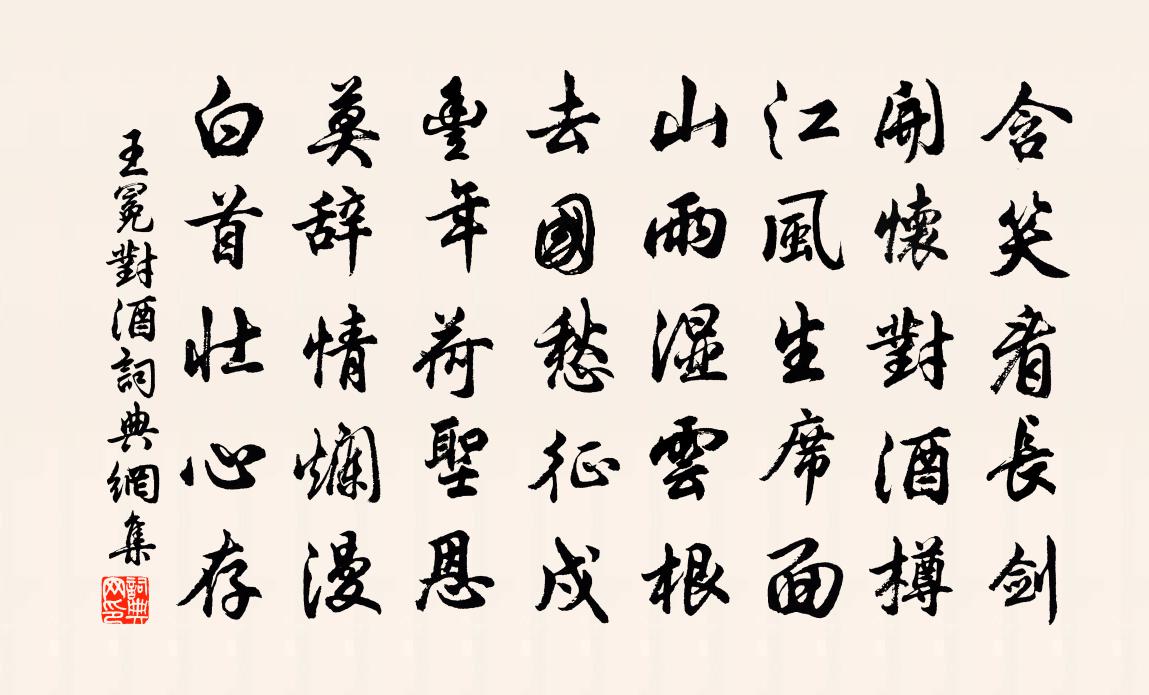 含笑看長剑
開懷對酒樽
江風生席面
山雨湿雲根
去國愁征戍
豊年荷聖恩
莫辞情爛漫
白首壮心存
王冕對酒詞典網集
詞典網印